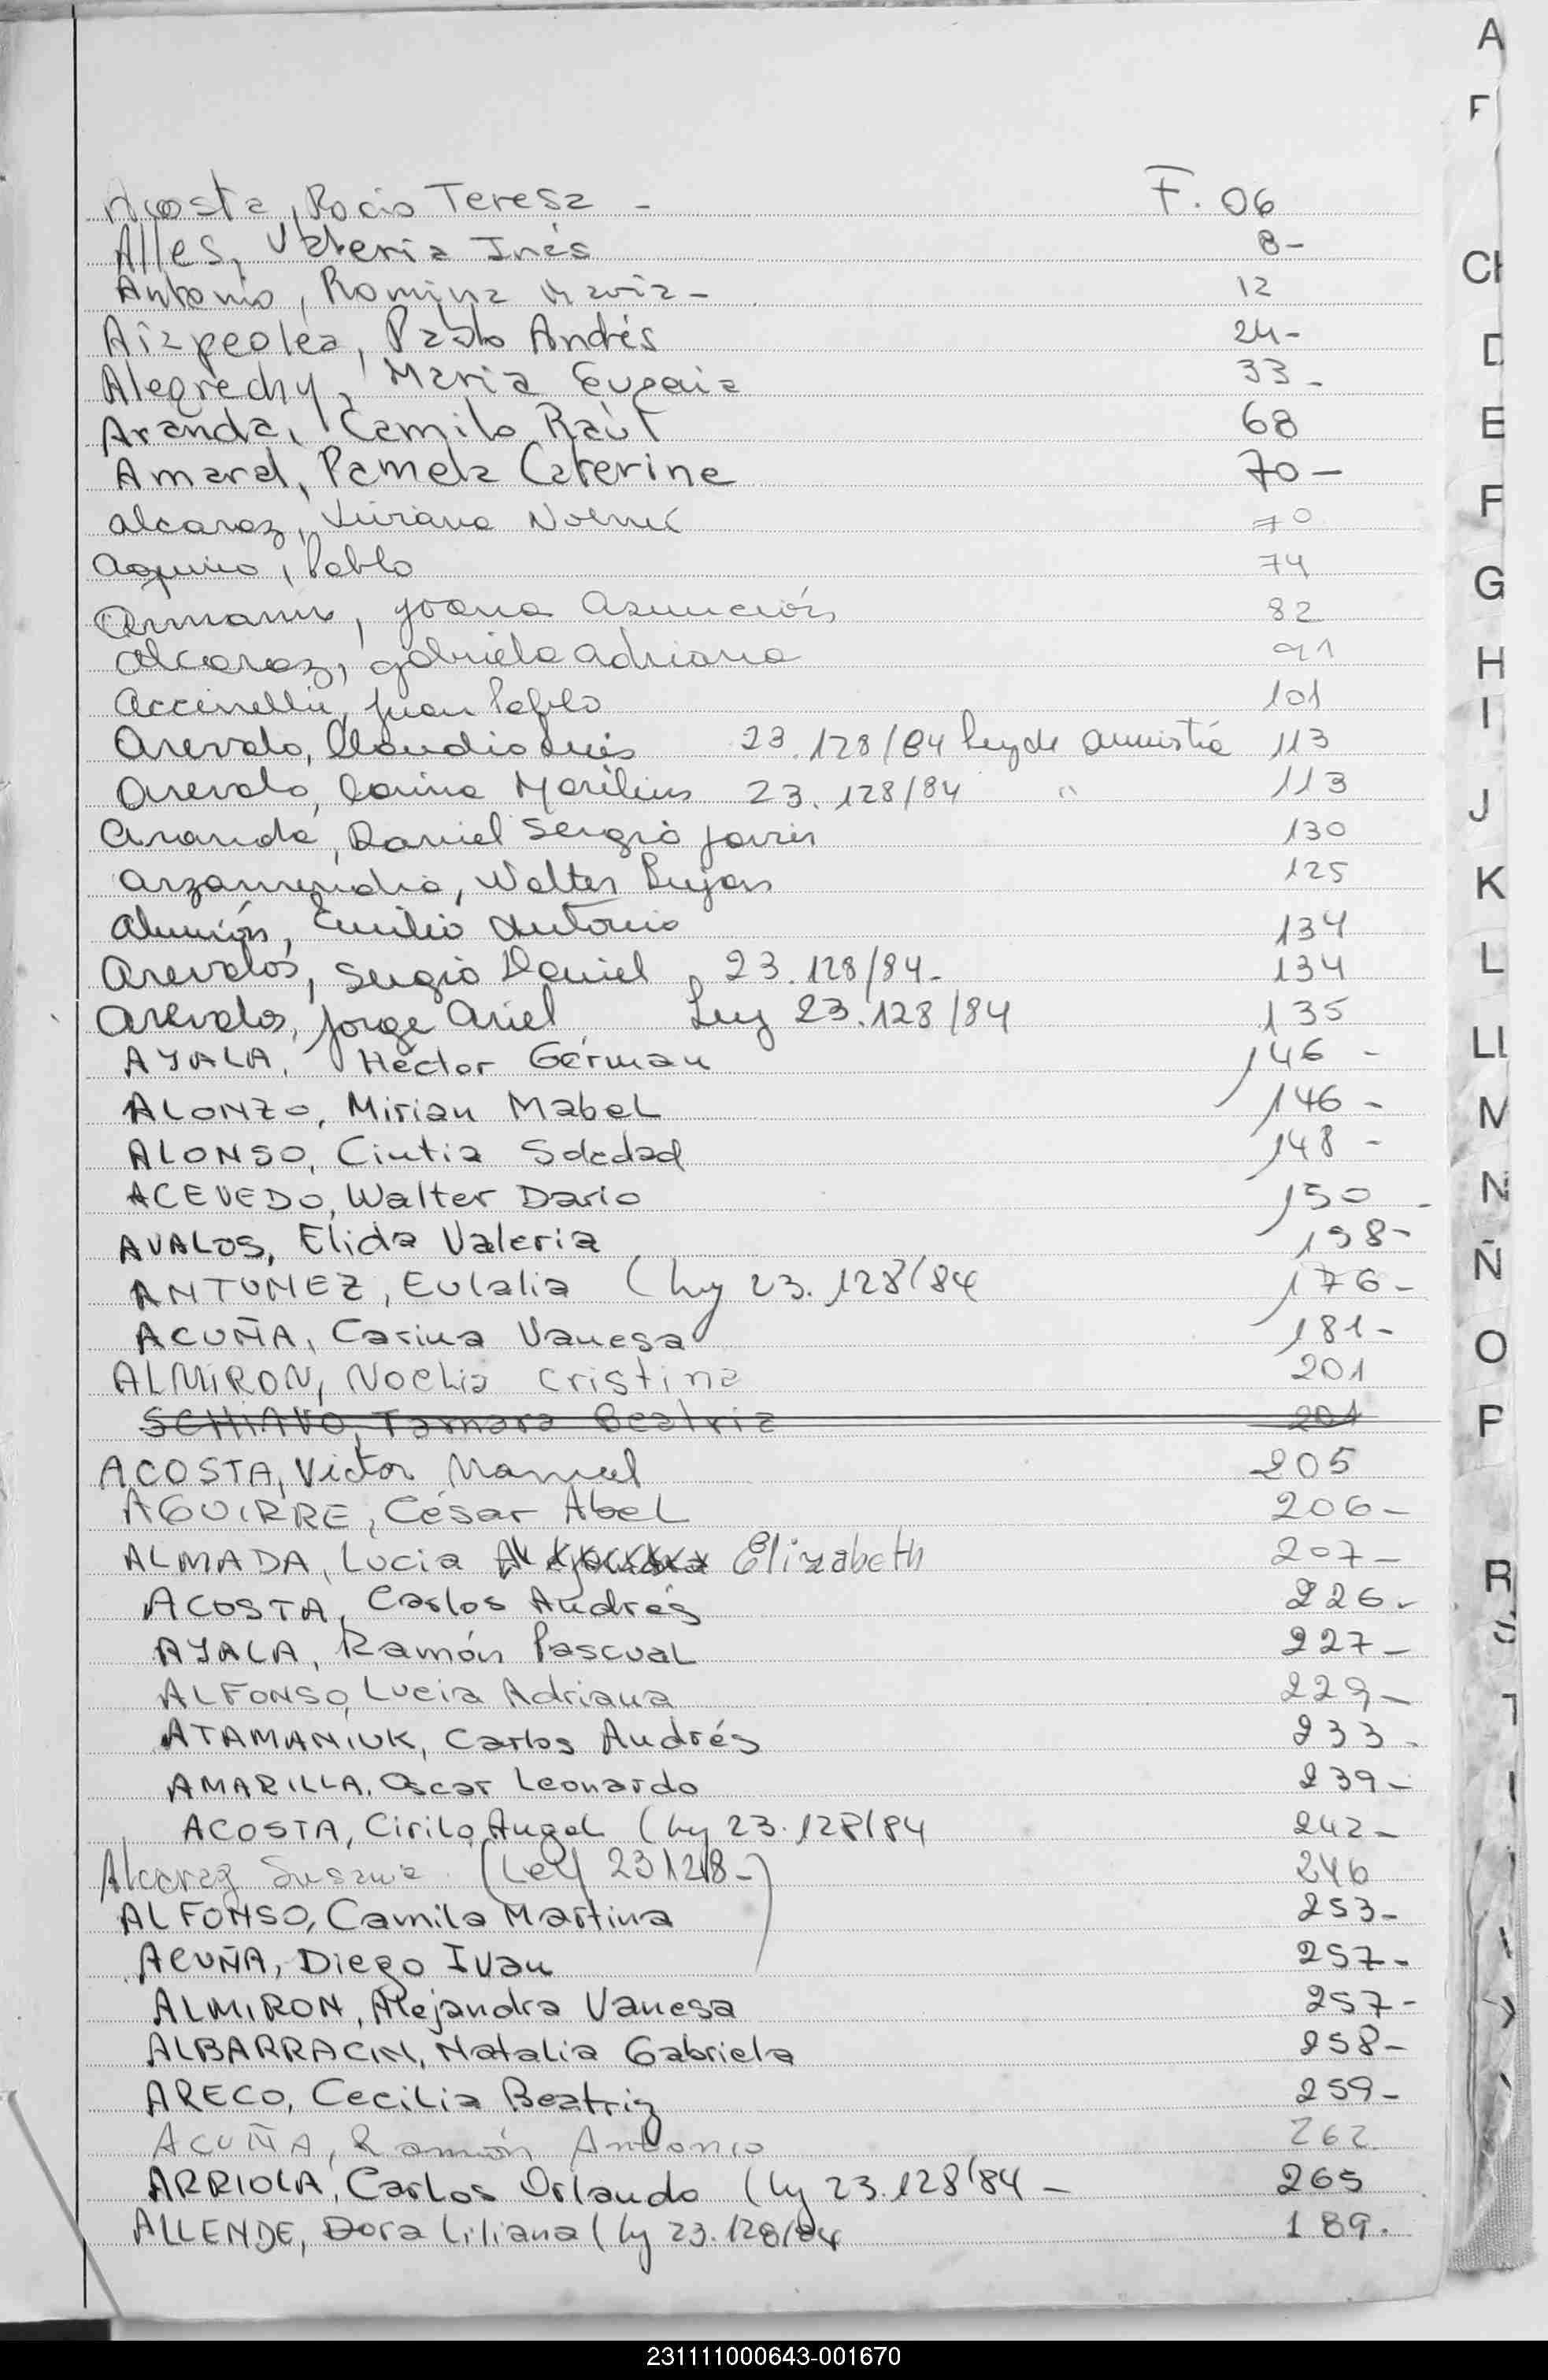 Acosta, Rocio Teresa - F. 06
Alles, Valeria Inés 8-
Antonio, Romina Maria - 12
Aizpeolea, Pablo Andrés 24-
Alegrechy, Maria Eugenia 33-
Aranda, Camilo Raúl 68
Amaral, Pamela Caterine 70-
Alcaraz, Viviana Noemí 70
Aquino, Pablo 74
Armann, Joana Asunción 82
Alcaraz, Gabriela Adriana 91
Accinelli, Juan Pablo 101
Arevalo, Claudio Luis 23.128/84 Ley de Amnistía 113
Arevalo, Carina Marilin 23.128/84 " 113
Aranda, Daniel Sergio Javier 130
Arzamendia, Walter Lujan 125
Almirón, Emilio Antonio 134
Arevalos, Sergio Daniel 23.128/84- 134
Arevalos, Jorge Ariel Ley 23.128/84 135
AYALA, Héctor Germán 146-
ALONZO, Mirian Mabel 146-
ALONSO, Cintia Soledad 148-
ACEVEDO, Walter Dario 150-
AVALOS, Elida Valeria 158-
ANTUNEZ, Eulalia (Ley 23.128/84 176-
ACUÑA, Carina Vanesa 181-
ALMiRON, Noelia Cristina 201
SCHiAVO, Tamara Beatriz 201
ACOSTA, Victor Manuel 205
AGUIRRE, César Abel 206-
ALMADA, Lucia Alejandra Elizabeth 207-
ACOSTA, Carlos Andrés 226-
AYALA, Ramón Pascual 227-
ALFONSO, Lucia Adriana 229-
ATAMANIUK, Carlos Andrés 233-
AMARILLA, Oscar Leonardo 239-
ACOSTA, Cirilo Angel (Ley 23.128/84 242-
Alcaraz Susana (Ley 23128-) 246
ALFONSO, Camila Martina 253-
ACUÑA, Diego Ivan 257-
ALMIRON, Alejandra Vanesa 257-
ALBARRACIN, Natalia Gabriela 258-
ARECO, Cecilia Beatriz 259-
ACUÑA, Ramón Antonio 262
ARRIOLA, Carlos Orlando (Ley 23.128/84 - 265
ALLENDE, Dora Liliana (Ley 23.128/84 189.
A
F
CH
D
E
F
G
H
I
J
K
L
LL
M
N
Ñ
O
P
R
S
T
231111000643-001670